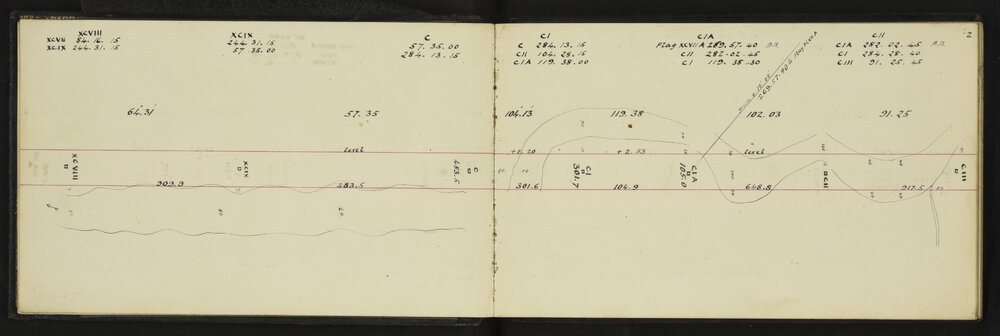 XCVIII
XCVII 84. 16. 15
XCIX 244. 31. 15
XCIX
244. 31. 15
57. 35. 00
C
57. 35. 00
284. 13. 15
64.31
57.35
Level
XCVIII
XCIX
C
483.5
909.9
483.5
80
60
2
CI
C 284. 13. 15
CII 104. 28. 15
CIA 119. 38. 00
CIA
Flag XCVIIA 269. 57. 40 B.B.
CII 282. 02. 45
CI 119. 38. 30
CII
CIA 282. 02. 45 F.B.
CI 284. 28. 40
CIII 91. 25. 45
269. 57. 40 to Flag XCVII A
104.13
119.38
102.03
91.25
+1.20
+2.53
Level
CI
301.7
CIA
105.0
CII
CIII
301.6
104.9
648.8
917.5